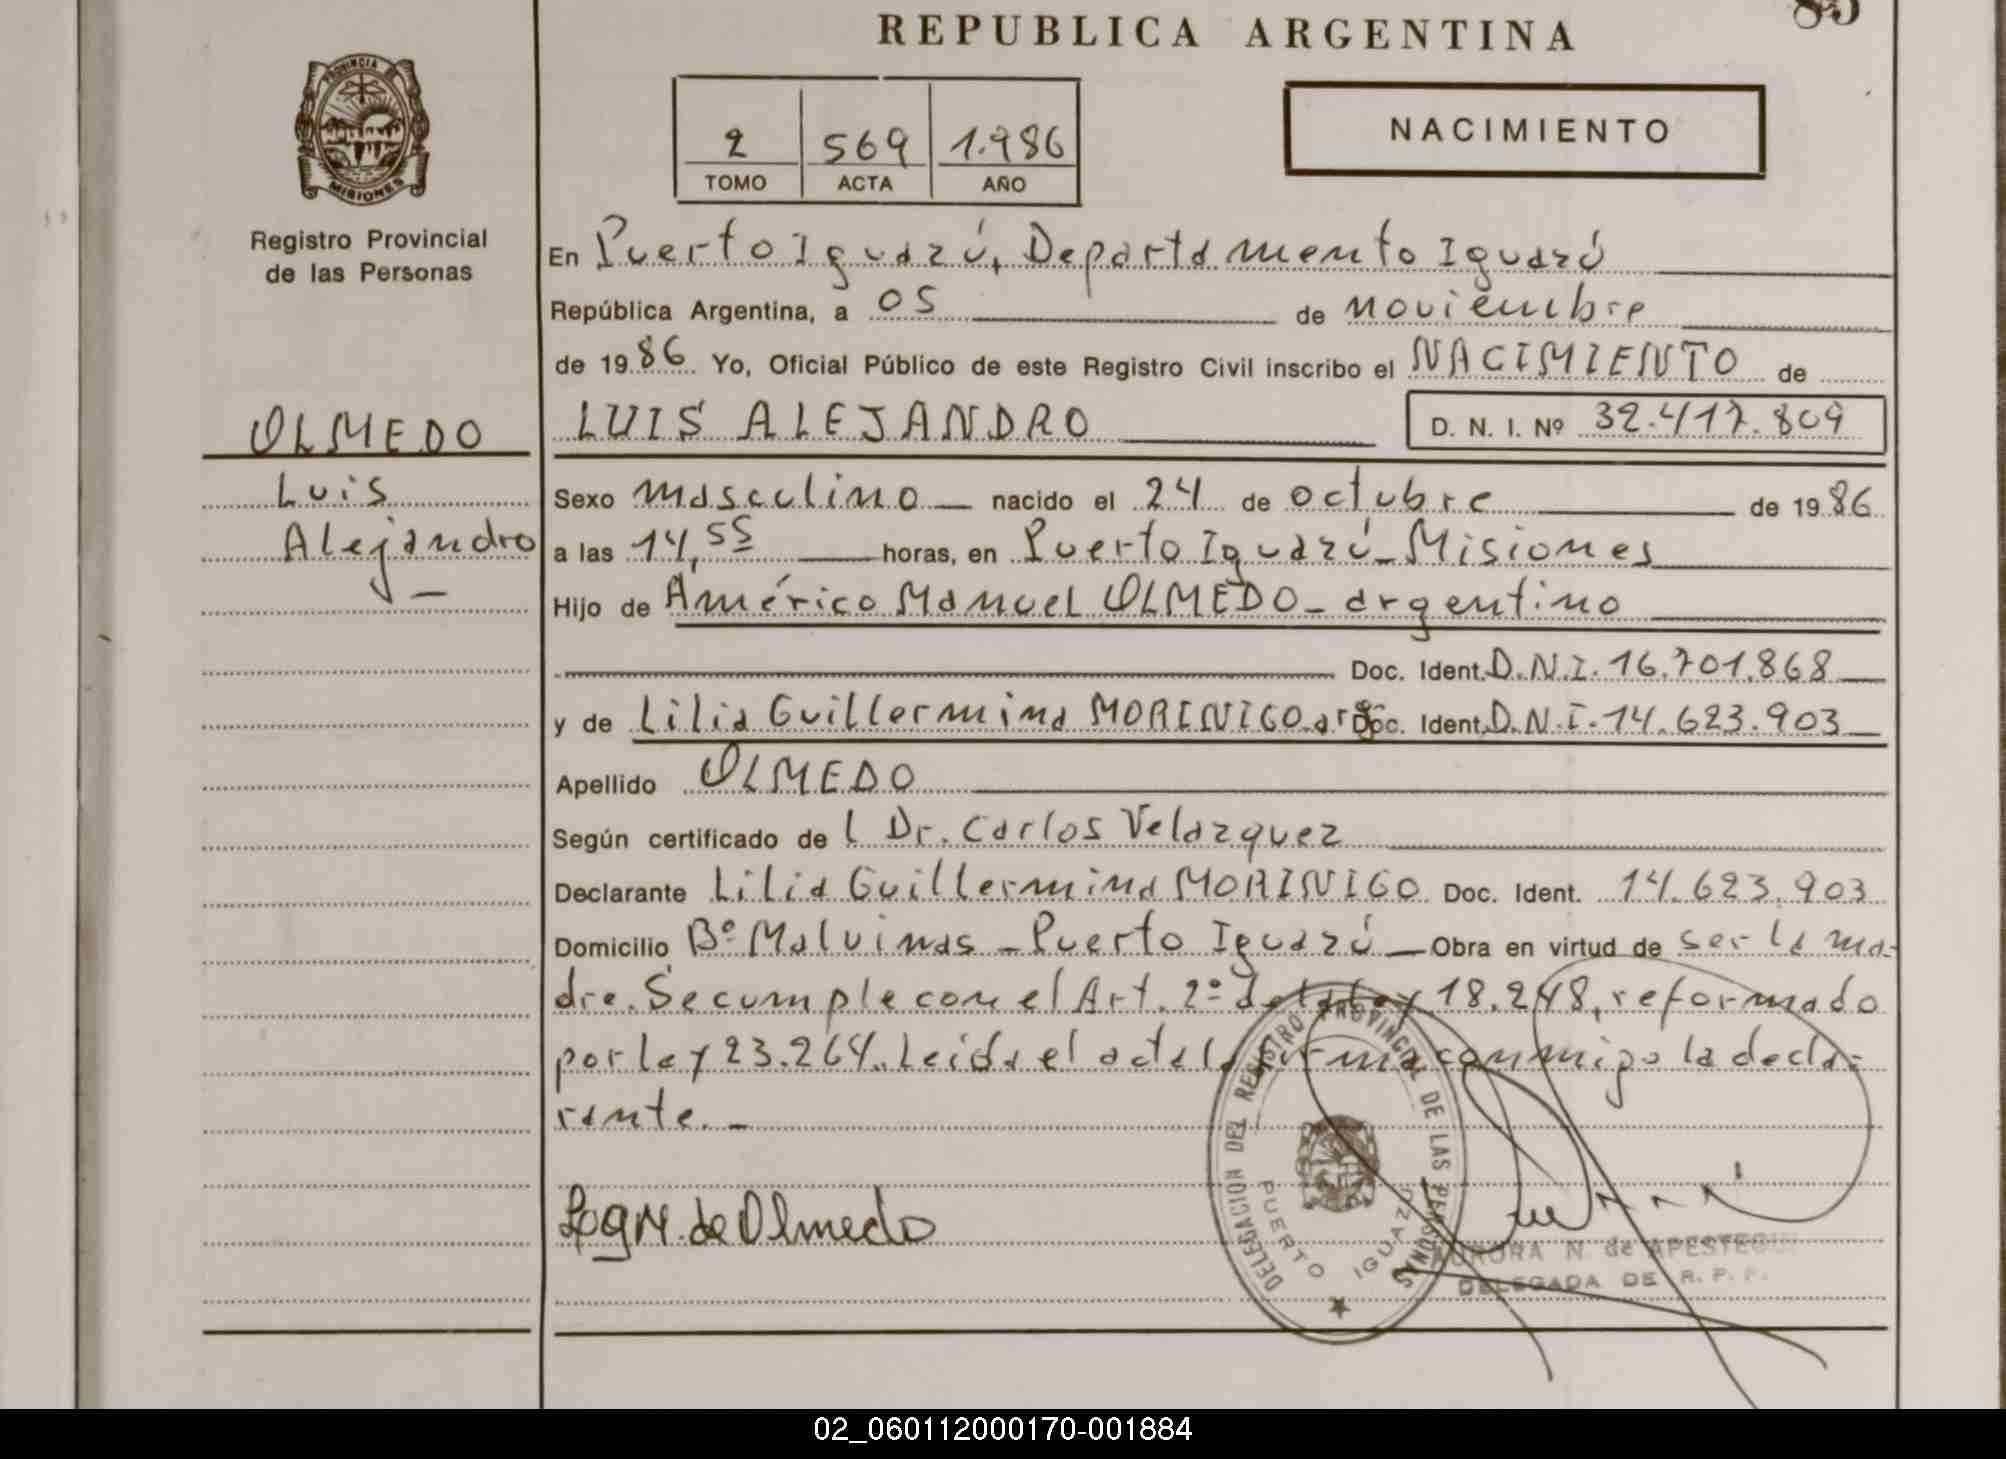 REPUBLICA ARGENTINA
85
PROVINCIA DE
MISIONES
Registro Provincial
de las Personas
2 569 1.986
TOMO ACTA AÑO
NACIMIENTO
En Puerto Iguazú, Departamento Iguazú
República Argentina, a 05 de noviembre
de 1986 Yo, Oficial Público de este Registro Civil inscribo el NACIMIENTO de
OLMEDO
Luis
Alejandro_
LUIS ALEJANDRO D. N. I. Nº 32.417.809
Sexo masculino nacido el 24 de octubre de 1986
a las 14,55 horas, en Puerto Iguazú_Misiones
Hijo de Américo Manuel OLMEDO_argentino
Doc. Ident. D.N.I.16.701.868
y de Lilia Guillermina MORINIGO arg. Doc. Ident. D.N.I.14.623.903
Apellido OLMEDO
Según certificado de l Dr. Carlos Velazquez
Declarante Lilia Guillermina MORINIGO Doc. Ident. 14.623.903
Domicilio Bº Malvinas _ Puerto Iguazú Obra en virtud de ser la ma-
dre. Se cumple con el Art. 2º de la Ley 18.248, reformado
por ley 23.264. Leída el acta la firma conmigo la decla-
rante._
de Olmedo
DELEGACION DEL REGISTRO PROVINCIAL DE LAS PERSONAS
PUERTO IGUAZU
AURORA N. de APESTEGUI
DELEGADA DE R. P. P.
02_060112000170-001884